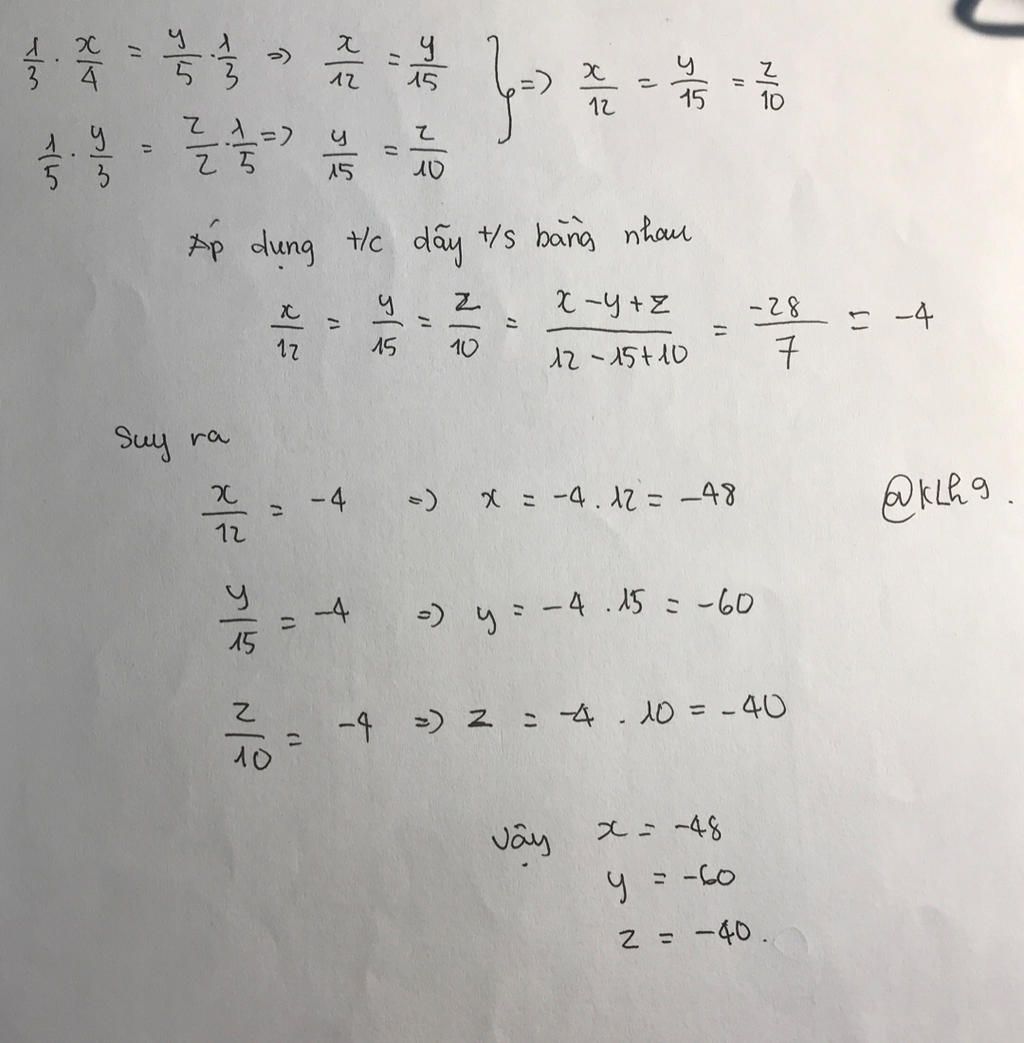 1/3 . x/4 = y/5 . 1/3 => x/12 = y/15 } => x/12 = y/15 = z/10
1/5 . y/3 = z/2 . 1/5 => y/15 = z/10
Áp dụng t/c dãy t/s bằng nhau
x/12 = y/15 = z/10 = (x - y + z)/(12 - 15 + 10) = -28/7 = -4
Suy ra
x/12 = -4 => x = -4 . 12 = -48 @KLh9.
y/15 = -4 => y = -4 . 15 = -60
z/10 = -4 => z = -4 . 10 = -40
Vậy x = -48
y = -60
z = -40.